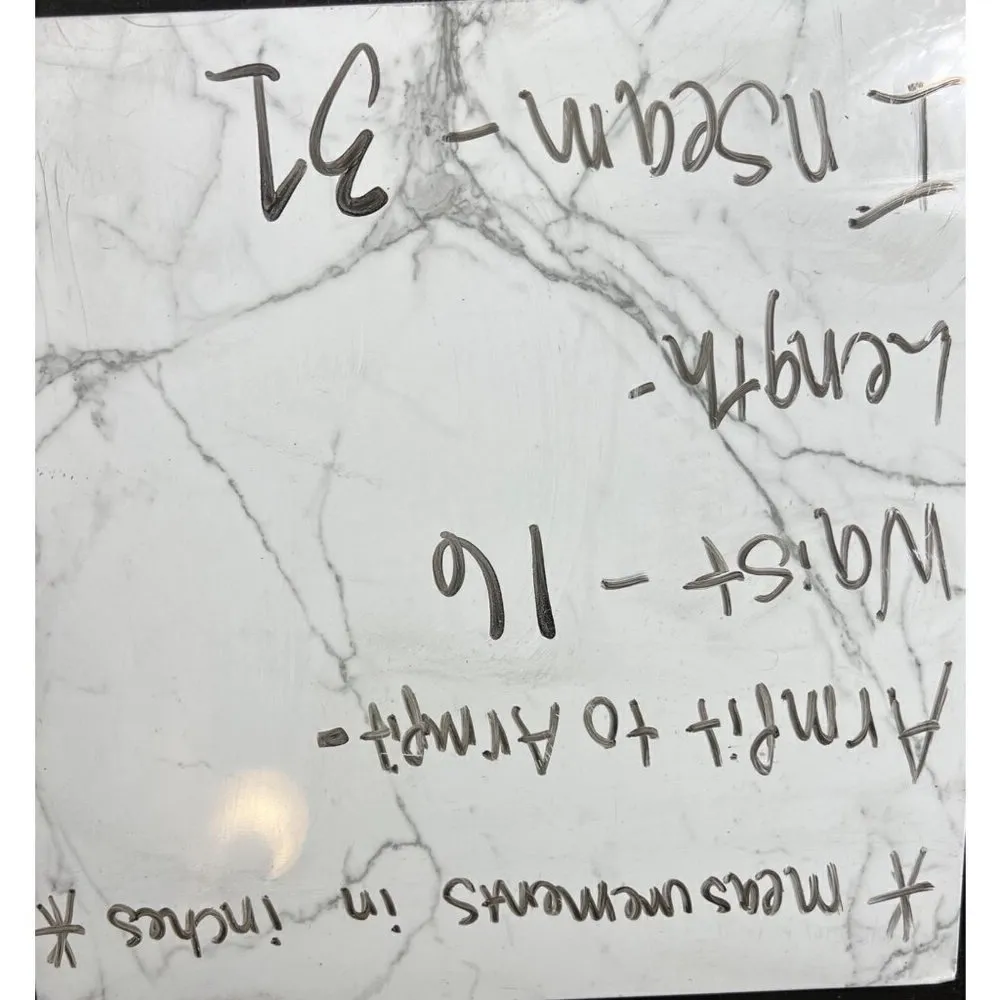 * measurements in inches *
Armpit to Armpit -
Waist - 16
Length -
Inseam - 31